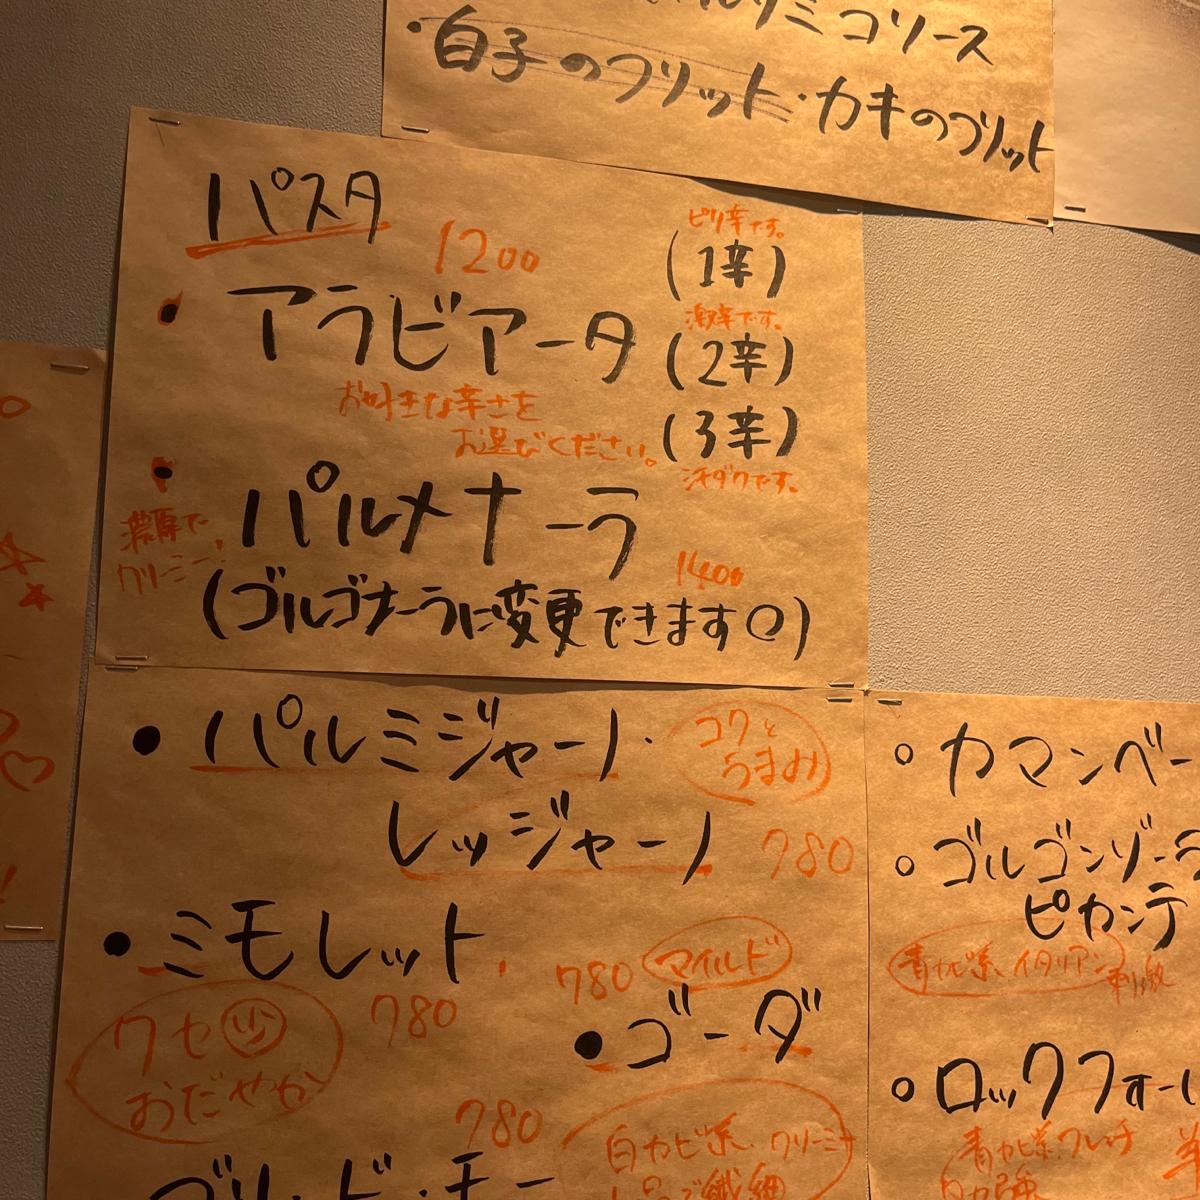 ルサミコソース
・白子のフリット・カキのフリット
パスタ
1200
・アラビアータ
ピリ辛です。
(1辛)
激辛です。
(2辛)
(3辛)
汗ダクです。
お好きな辛さを
お選びください。
・パルメナーラ
濃厚で
クリーミー!
1400
(ゴルゴナーラに変更できます@)
・パルミジャーノ・
レッジャーノ
コクと
うまみ
780
・ミモレット
780
クセ少
おだやか
780
マイルド
・ゴーダ
780
白カビ系、クリーミー
上品で繊細
○カマンベー
○ゴルゴンゾーラ
ピカンテ
青カビ系、イタリアン
刺激
○ロックフォール
青カビ系フレンチ